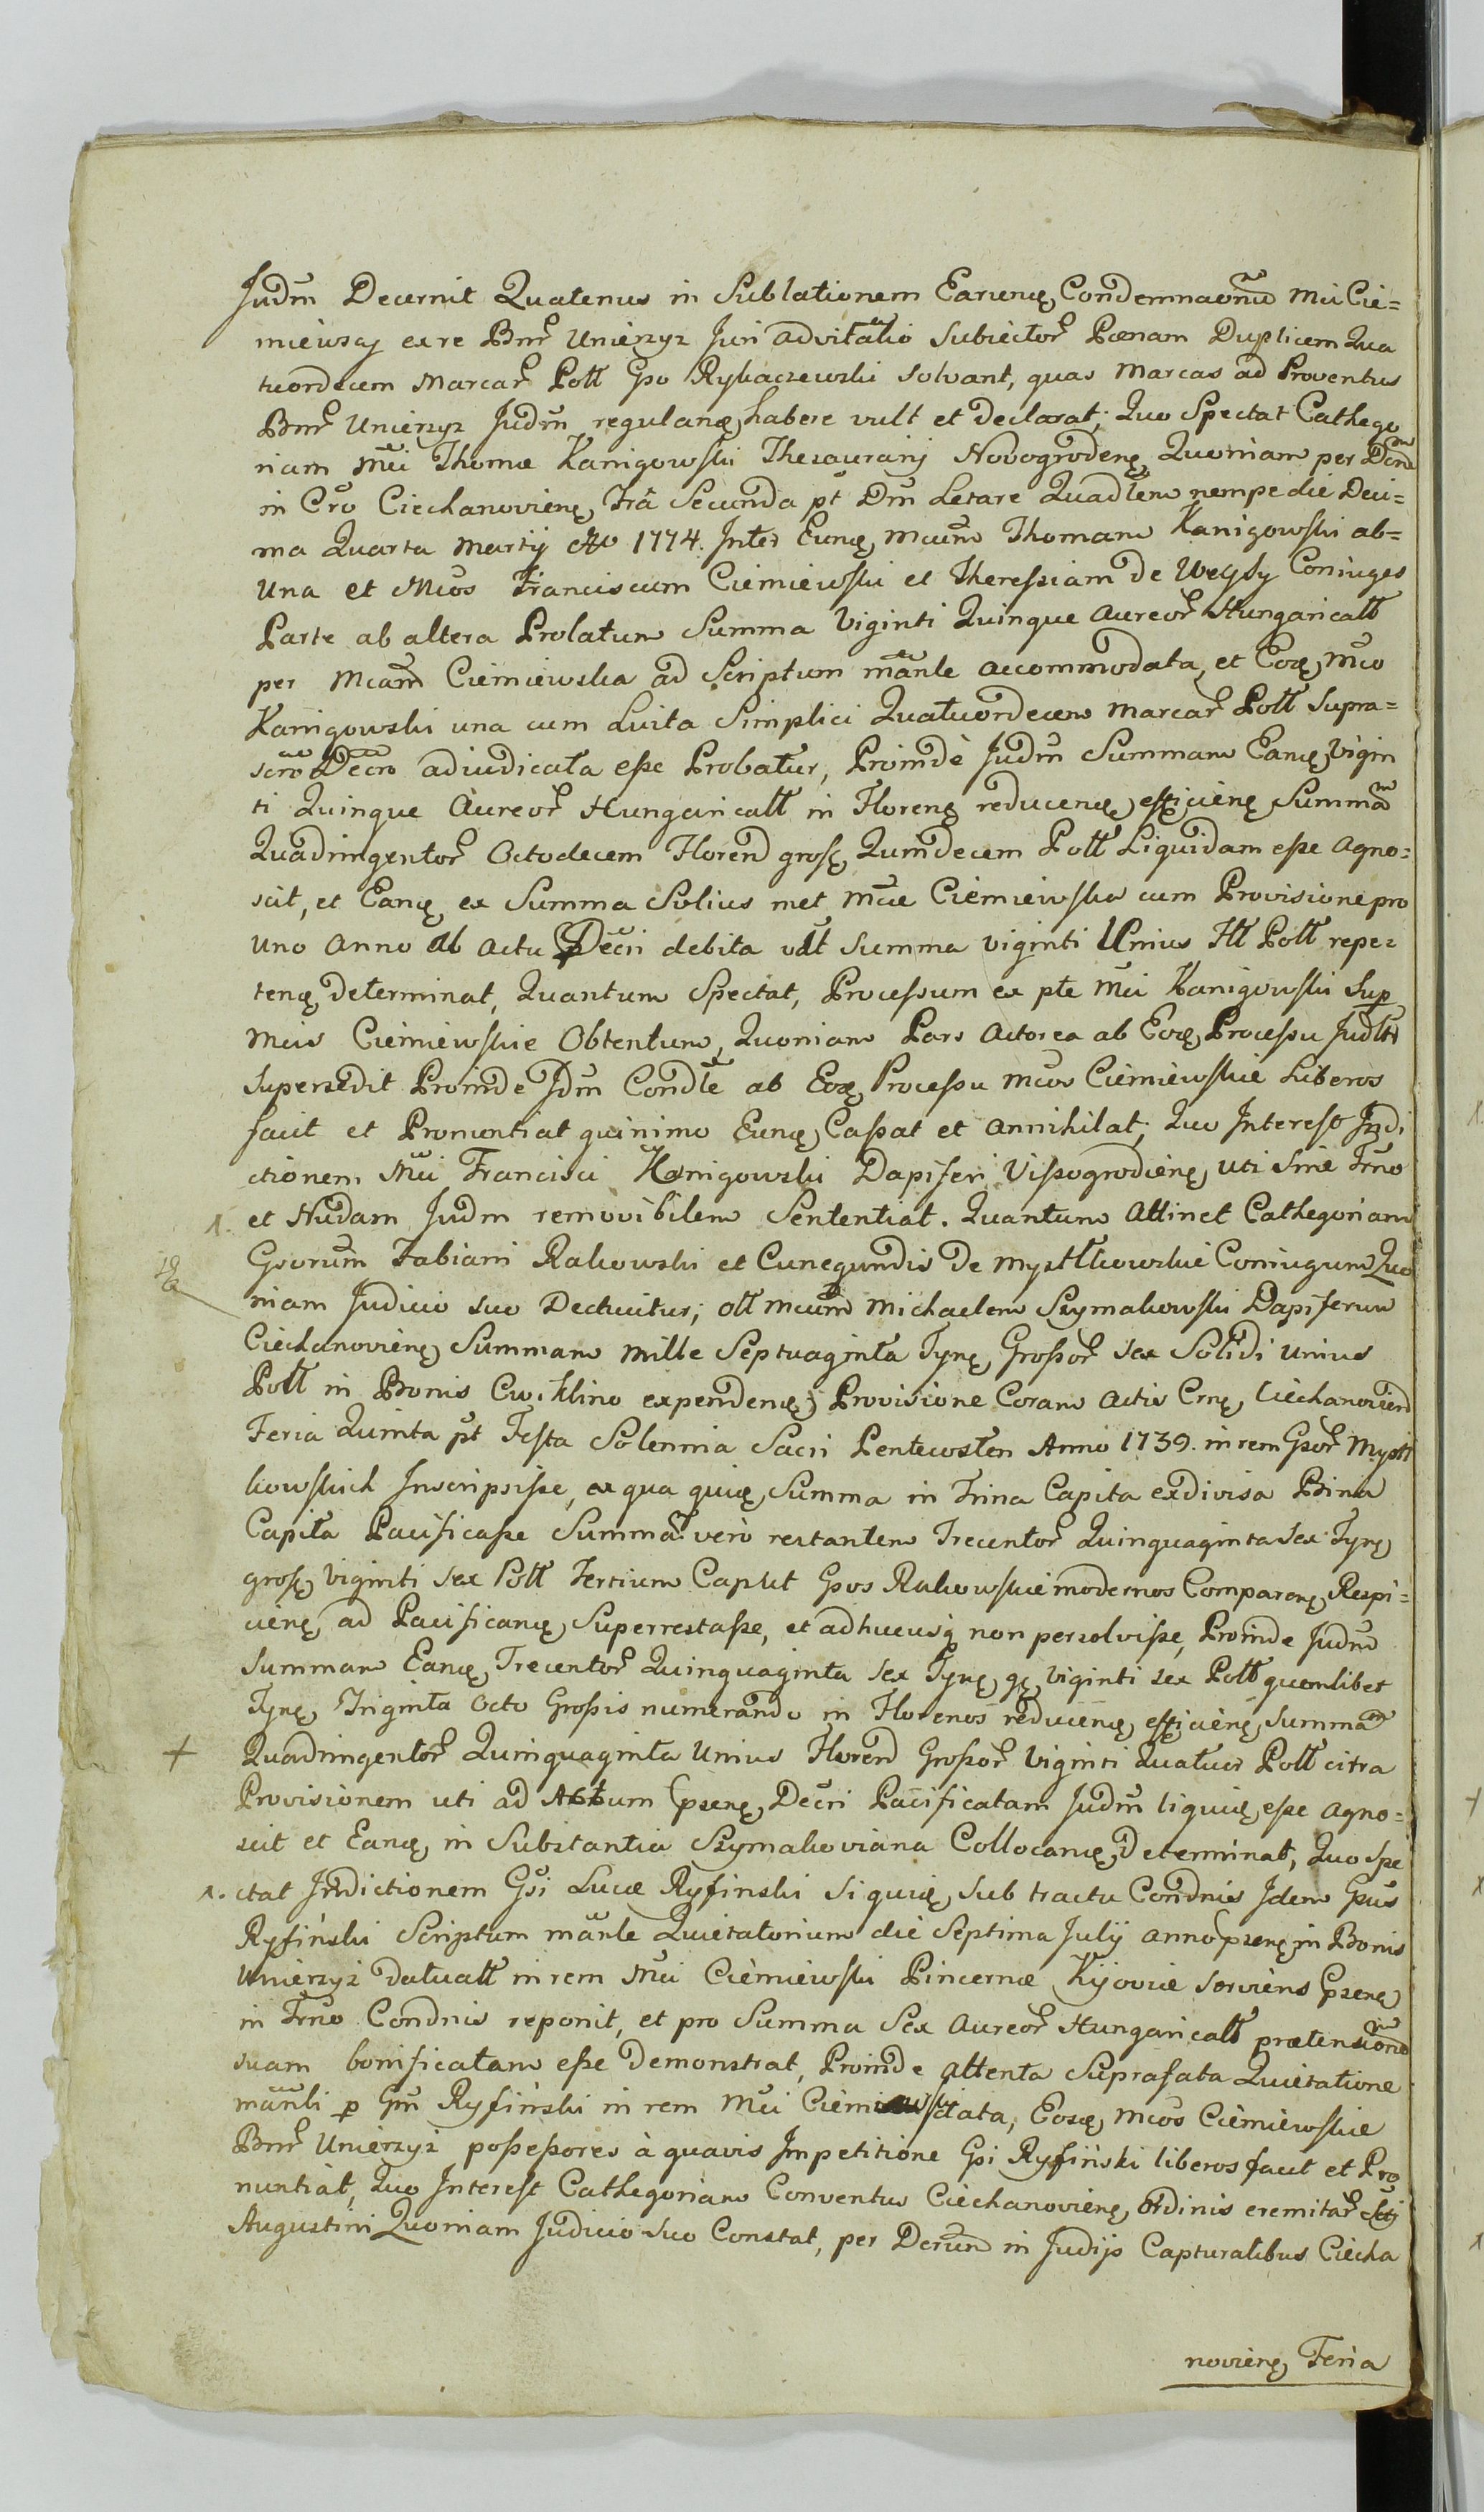 Judm Decernit Quatenus in Sublationem Earunę Condemnaonu Mci Cie=
miewscy ex re Bnr Unierzyż Juri advitalio Subiector Pœnam Duplicem Qua
tuordecem Marcar Poll Gso Rybaczewski solvant, quas Marcas ad Proventus
Bnr Unierzyż Judm regulanę habere vult et declarat; Quo Spectat Cathego
riam Mci Thomæ Kanigowski Thesaurarij Novogrodenę Quoniam per Dcrm
in Cro Ciechanovienę Fra Secunda pt Dm Letare Quadlem nempe die Deci=
ma Quarta Martij Ao 1774. Inter Eunę Mcum Thomam Kanigowski ab=
una et Mcos Franciscum Ciemiewski et Theressiam de Węgsky Coniuges
Parte ab altera Prolatum Summa Viginti Quinque Aureor Hungaricall
per Mcam Ciemiewska ad Scriptum manle accommodata, et Eoę Mco
Kanigowski una cum Luita Simplici Quatuordecem Marcar Poll Supra=
scro Decro adiudicata esse Probatur, Proinde Judm Summam Eanę Vigin
ti Quinque Aureor Hungaricall in Florenę reducenę efficienę Summam
Quadringentor Octodecem Florend grosę Quindecem Poll Liquidam esse Agno=
scit, et Eanę ex Summa Solius met Mcæ Ciemiewska cum Provisione pro
uno Anno ab Actu Decri debita vdt Summa viginti Unius Fll Poll repe=
tenę determinat, Quantum Spectat, Processum ex pte Mci Kanigowski Sup
Mcis Ciemiewskie Obtentum, Quoniam Pars Actorea ab Eoę Processu Judltr
Supersedit Proinde Jdm Condle ab Eoę Processu Mcos Ciemiewskie Liberos
facit et Pronontiat quinimo Eunę Cassat et Annihilat; Quo Interest Indi
ctionem Mci Francisci Kanigowski Dapiferi Vissogrodienę uti Sine Trno
et Nudam Judm removibilem Sententiat. Quantum Attinet Cathegoriam
1.
Gsorum Fabiani Rakowski et Cunegundis De Mystkowskie Coniugum Quo
niam Judicio suo Deducitur; oll Mcum Michaelem Szymakowski Dapiferum
Ciechanovienę Summam Mille Septuaginta Tynę Grossor sex Solidi Unius
Poll in Bonis Cwiklino expendenę Provisione Coram Actis Crnę Ciechanoviend
Feria Quinta pt Festa Solennia Sacri Pentecosten Anno 1739. in rem Gsor Mystk
kowskich Inscripsisse, ex qua quię Summa in Trina Capita exdivisa Bina
Capita Pacificasse Summam vero restantem Trecentor Quinquaginta Sex Tynę
grosę Viginti sex Poll Tertium Caput Gsos Rakowskie modernos Comparenę Respi=
cienę ad Pacificanę Superrestasse, et adhucusq non persolvisse, Proinde Judm
Summam Eanę Trecentor Quinquaginta sex Tynę gę viginti sex Poll quemlibet
Tynę Triginta Octo Grossis numerando in Florenos reducenę efficienę Summam
+
Quadringentor Quinquaginta Unius Florend Grossor Viginti Quatuor Poll citra
Provisionem uti ad Actum psenę Decri Pacificatam Judm liquię esse Agno=
scit et Eanę in Substantia Szymakoviana Collocanę Determinat, Quo Spe
1. ctat Indictionem Gsi Lucæ Ryfinski siquię sub tractu Condnis Idem Gsus
Ryfiński Scriptum manle Quietatorium die Septima Julij anno psenę in Bonis
Unierzyż datuall in rem Mci Ciemiewski Pincernæ Kijoviæ serviens psenę
in Trno Condnis reponit, et pro Summa Sex Aureor Hungaricall prætensionem
suam bonificatam esse Demonstrat, Proinde attenta Suprafata Quietatione
manli p Gm Ryfiński in rem Mci Ciemiewski data, Eosę Mcos Ciemiewskie
Bnr Unierzyż possessores à quavis Impetitione Gsi Ryfiński liberos facit et Pro
nuntiat, Quo Interest Cathegoriam Conventus Ciechanovienę Ordinis eremitar Scti
Augustini Quoniam Judicio suo Constat, per Decrum in Judijs Capturalibus Ciecha
novienę Feria